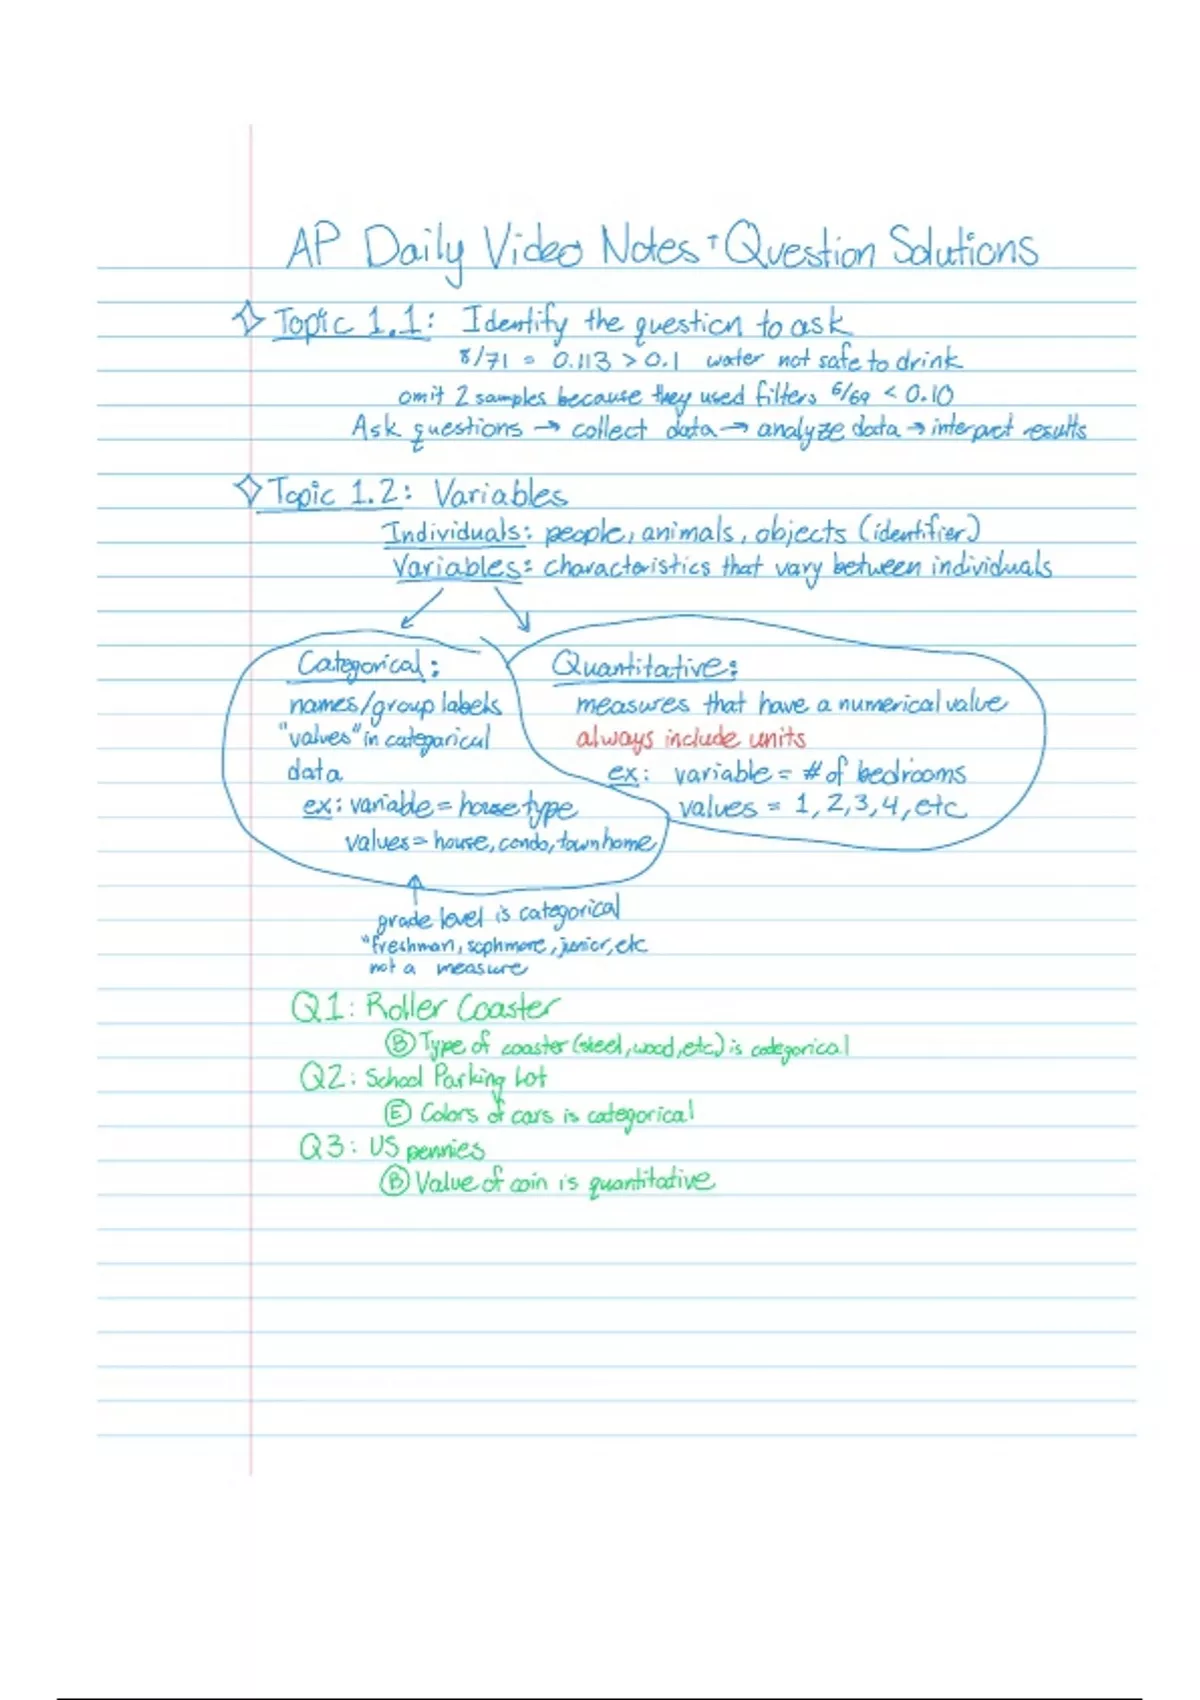 AP Daily Video Notes + Question Solutions
Topic 1.1: Identify the question to ask
8/71 = 0.113 > 0.1 water not safe to drink
omit 2 samples because they used filters 6/69 < 0.10
Ask questions → collect data → analyze data → interpret results
Topic 1.2: Variables
Individuals: people, animals, objects (identifier)
Variables: characteristics that vary between individuals
Categorical:
names/group labels
"values" in categorical
data
ex: variable = house type
values = house, condo, townhome
Quantitative:
measures that have a numerical value
always include units
ex: variable = # of bedrooms
values = 1, 2, 3, 4, etc
grade level is categorical
"freshman, sophmore, junior, etc
not a measure
Q1: Roller Coaster
B Type of coaster (steel, wood, etc) is categorical
Q2: School Parking Lot
E Colors of cars is categorical
Q3: US pennies
B Value of coin is quantitative